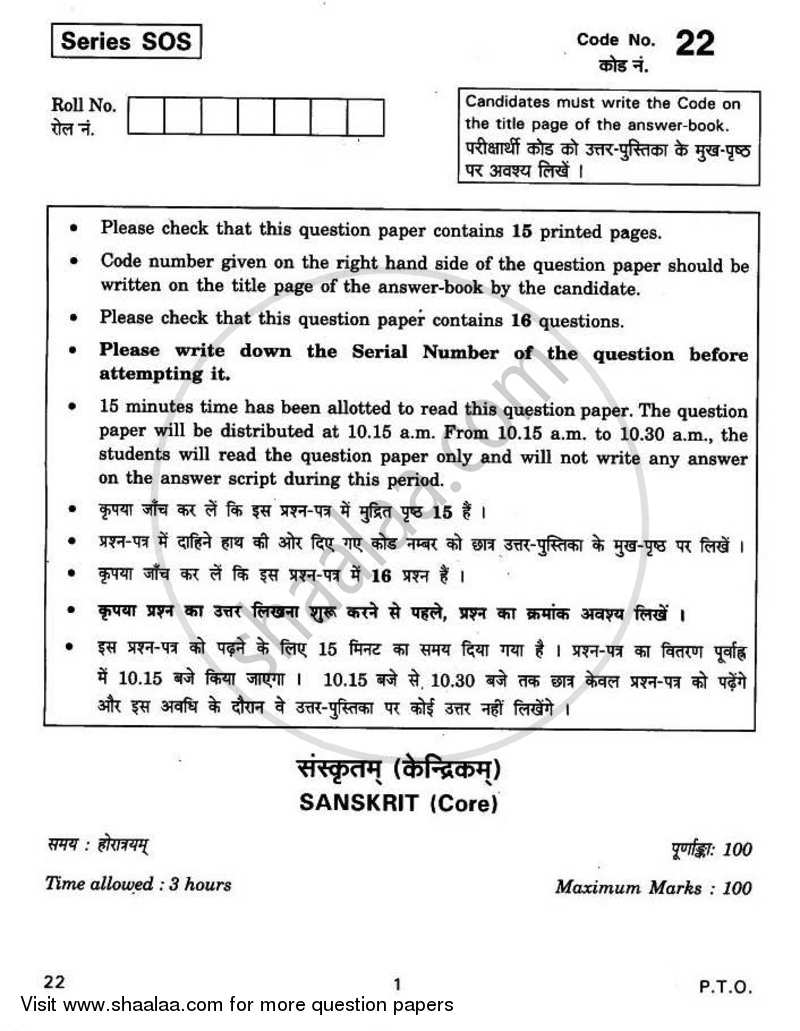 Series SOS
Code No. 22
कोड नं.
Roll No.
रोल नं.
Candidates must write the Code on
the title page of the answer-book.
परीक्षार्थी कोड को उत्तर-पुस्तिका के मुख-पृष्ठ
पर अवश्य लिखें ।
• Please check that this question paper contains 15 printed pages.
• Code number given on the right hand side of the question paper should be
written on the title page of the answer-book by the candidate.
• Please check that this question paper contains 16 questions.
• Please write down the Serial Number of the question before
attempting it.
• 15 minutes time has been allotted to read this question paper. The question
paper will be distributed at 10.15 a.m. From 10.15 a.m. to 10.30 a.m., the
students will read the question paper only and will not write any answer
on the answer script during this period.
• कृपया जाँच कर लें कि इस प्रश्न-पत्र में मुद्रित पृष्ठ 15 हैं ।
• प्रश्न-पत्र में दाहिने हाथ की ओर दिए गए कोड नम्बर को छात्र उत्तर-पुस्तिका के मुख-पृष्ठ पर लिखें ।
• कृपया जाँच कर लें कि इस प्रश्न-पत्र में 16 प्रश्न हैं ।
• कृपया प्रश्न का उत्तर लिखना शुरू करने से पहले, प्रश्न का क्रमांक अवश्य लिखें ।
• इस प्रश्न-पत्र को पढ़ने के लिए 15 मिनट का समय दिया गया है । प्रश्न-पत्र का वितरण पूर्वाह्न
में 10.15 बजे किया जाएगा । 10.15 बजे से 10.30 बजे तक छात्र केवल प्रश्न-पत्र को पढ़ेंगे
और इस अवधि के दौरान वे उत्तर-पुस्तिका पर कोई उत्तर नहीं लिखेंगे ।
shaalaa.com
संस्कृतम् (केन्द्रिकम्)
SANSKRIT (Core)
समय : होरात्रयम्
पूर्णाङ्काः 100
Time allowed : 3 hours
Maximum Marks : 100
22
1
P.T.O.
Visit www.shaalaa.com for more question papers